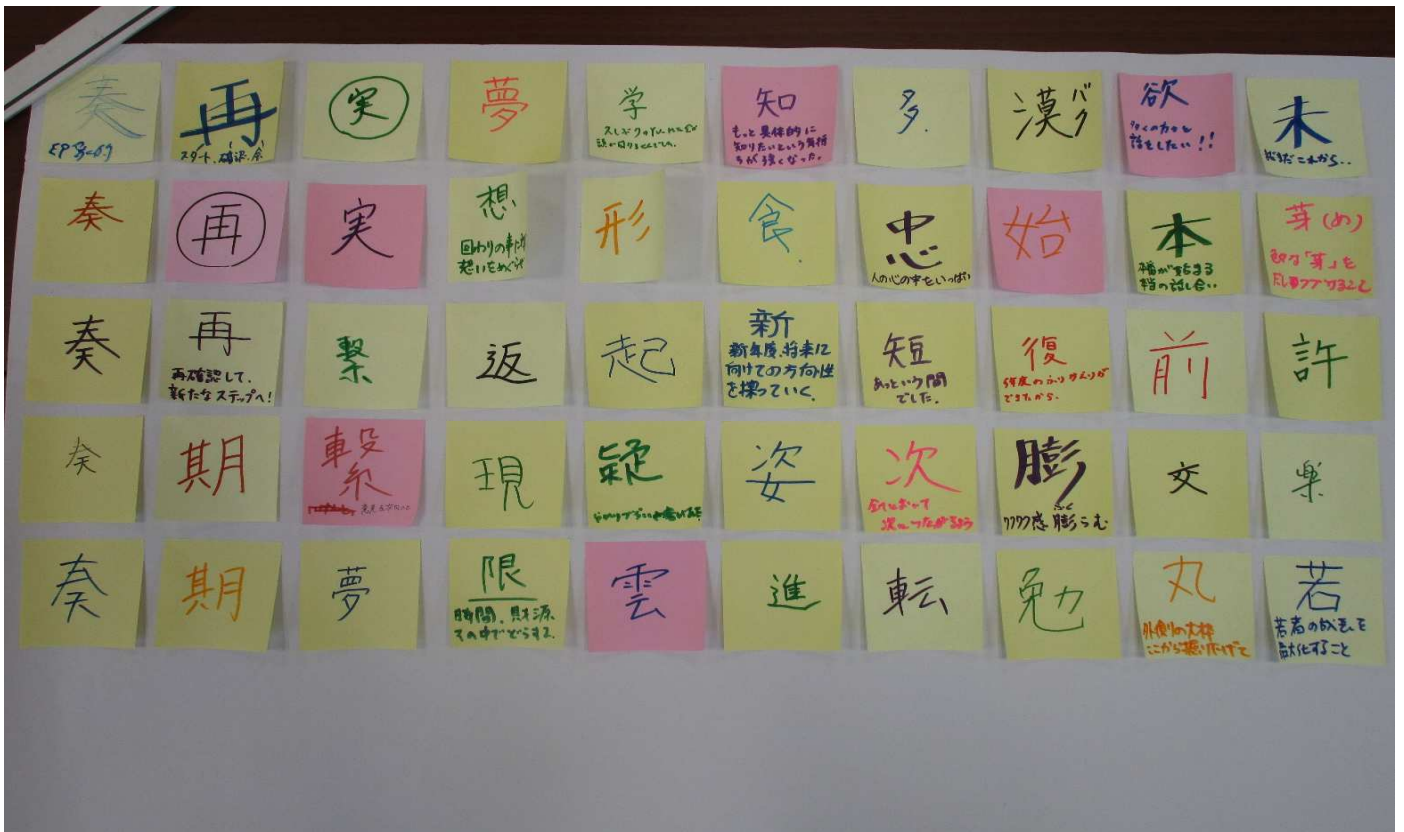 奏
再
スタート、確認、会
実
夢
学
知
もっと具体的に
知りたいという気持
ちが強くなった。
多.
漠 バク
欲
多くの方々と
話をしたい!!
未
まだまだこれから..
奏
再
実
想
回わりの事に対
想いをめぐらす
形
食.
忠
人の心の中をいっぱい
始
本
本番が始まる
本当の話し合い
芽(め)
奏
再
再確認して、
新たなステップへ!
繋
返
起
新
新年度、将来に
向けての方向性
を探っていく。
短
あっという間
でした。
復
今年度のふりかえりが
できたから。
前
許
奏
期
繋
現
疑
姿
次
会においても
次につながるよう
膨
ワクワク感 膨らむ
交
楽
奏
期
夢
限
時間、財源、
その中でどうする。
雲
進
転
勉
丸
外側の大枠
ここから掘り広げて
若